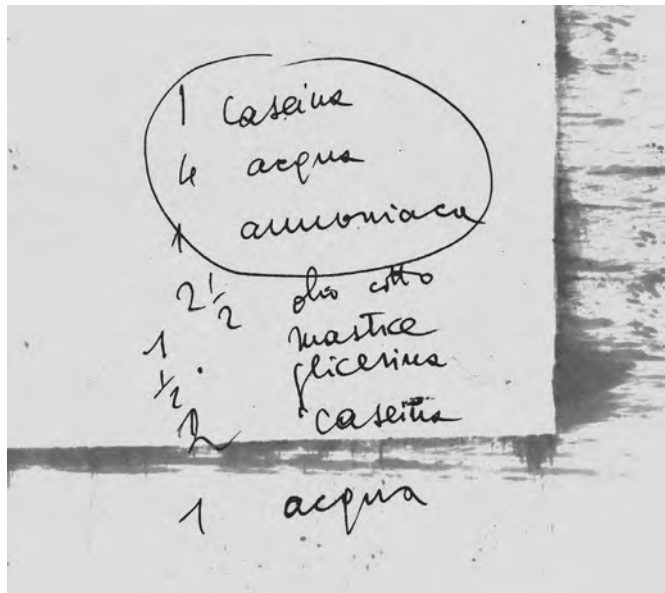 1 caseina
4 acqua
1 ammoniaca
2 1/2 olio cotto
1 mastice
1/2 glicerina
2 caseina
1 acqua